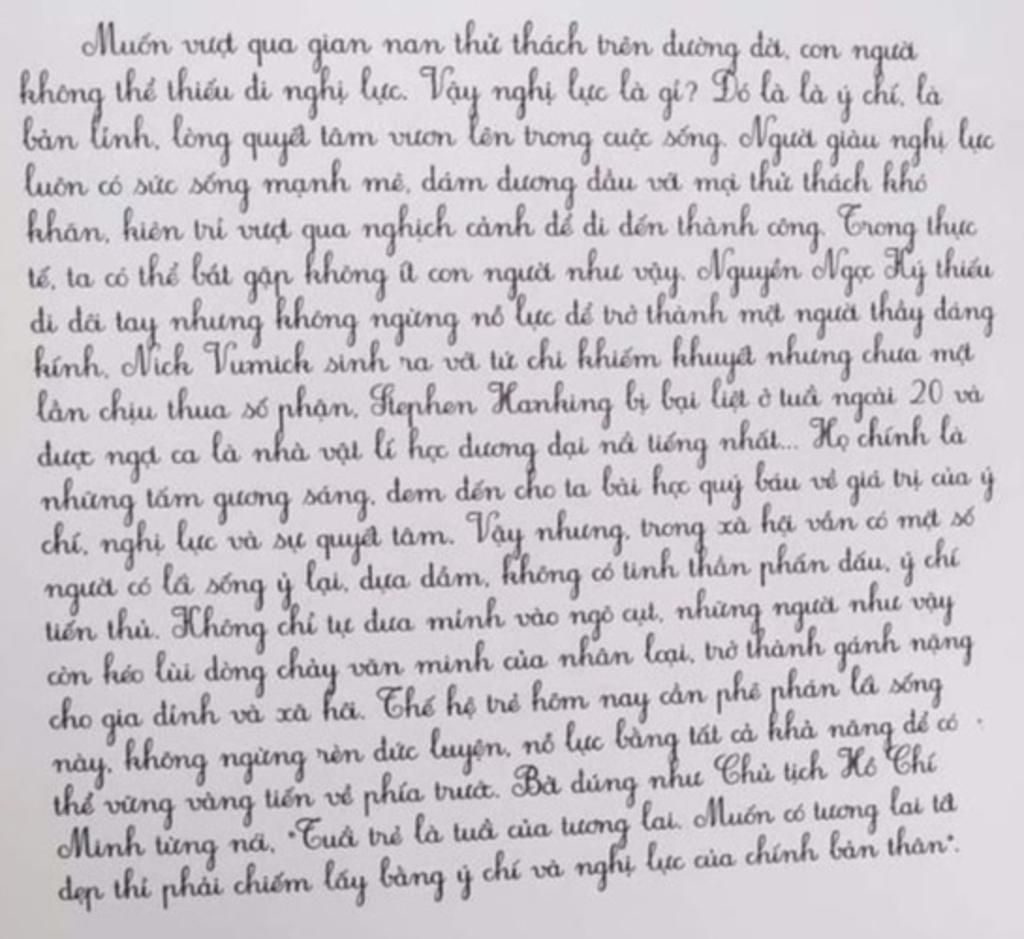 Muốn vượt qua gian nan thử thách trên đường đời, con người
không thể thiếu đi nghị lực. Vậy nghị lực là gì? Đó là là ý chí, là
bản lĩnh, lòng quyết tâm vươn lên trong cuộc sống. Người giàu nghị lực
luôn có sức sống mạnh mẽ, dám đương đầu với mọi thử thách khó
khăn, kiên trì vượt qua nghịch cảnh để đi đến thành công. Trong thực
tế, ta có thể bắt gặp không ít con người như vậy. Nguyễn Ngọc Ký thiếu
đi đôi tay nhưng không ngừng nỗ lực để trở thành một người thầy đáng
kính, Nick Vumick sinh ra với tứ chi khiếm khuyết nhưng chưa một
lần chịu thua số phận, Stephen Hanking bị bại liệt ở tuổi ngoài 20 và
được ngợi ca là nhà vật lí học đương đại nổi tiếng nhất... Họ chính là
những tấm gương sáng, đem đến cho ta bài học quý báu về giá trị của ý
chí, nghị lực và sự quyết tâm. Vậy nhưng, trong xã hội vẫn có một số
người có lối sống ỷ lại, dựa dẫm, không có tinh thần phấn đấu, ý chí
tiến thủ. Không chỉ tự đưa mình vào ngõ cụt, những người như vậy
còn kéo lùi dòng chảy văn minh của nhân loại, trở thành gánh nặng
cho gia đình và xã hội. Thế hệ trẻ hôm nay cần phê phán lối sống
này, không ngừng rèn đức luyện, nỗ lực bằng tất cả khả năng để có
thể vững vàng tiến về phía trước. Bởi đúng như Chủ tịch Hồ Chí
Minh từng nói, "Tuổi trẻ là tuổi của tương lai. Muốn có tương lai tốt
đẹp thì phải chiếm lấy bằng ý chí và nghị lực của chính bản thân".